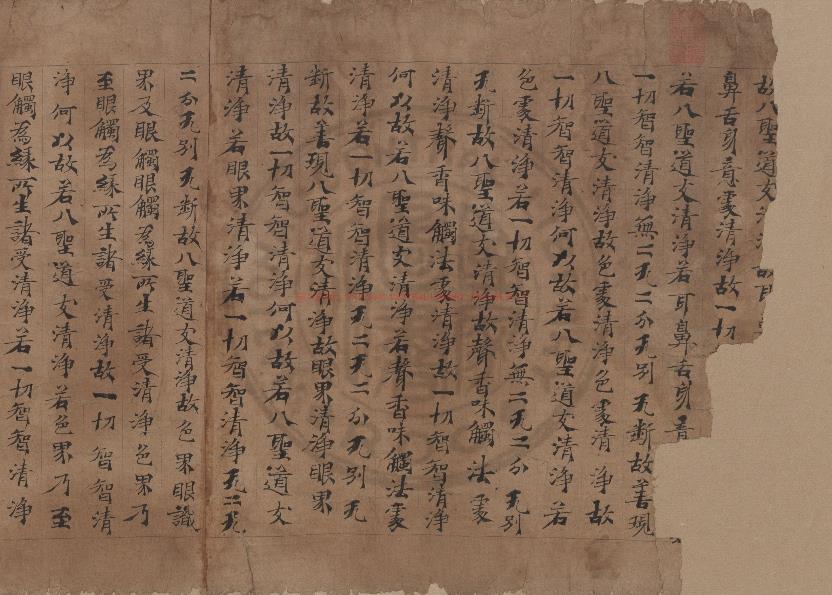 故八聖道支清
鼻舌身意處清淨故一切
若八聖道支清淨若耳鼻舌身意
一切智智清淨無二无二分无別无斷故善現
八聖道支清淨故色處清淨色處清淨故
一切智智清淨何以故若八聖道支清淨若
色處清淨若一切智智清淨無二无二分无別
无斷故八聖道支清淨故聲香味觸法處
清淨聲香味觸法處清淨故一切智智清淨
何以故若八聖道支清淨若聲香味觸法處
清淨若一切智智清淨无二无二分无別无
斷故善現八聖道支清淨故眼界清淨眼界
清淨故一切智智清淨何以故若八聖道支
清淨若眼界清淨若一切智智清淨无二无
二分无別无斷故八聖道支清淨故色界眼識
界及眼觸眼觸為緣所生諸受清淨色界乃
至眼觸為緣所生諸受清淨故一切智智清
淨何以故若八聖道支清淨若色界乃至
眼觸為緣所生諸受清淨若一切智智清淨